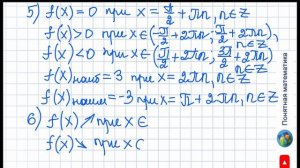 5) f(x) = 0 при x = π/2 + πn, n∈Z
f(x) > 0 при x∈(-π/2 + 2πn; π/2 + 2πn), n∈Z
f(x) < 0 при x∈(π/2 + 2πn; 3π/2 + 2πn), n∈Z
f(x)наиб = 3 при x = 2πn, n∈Z
f(x)наим = -3 при x = π + 2πn, n∈Z
6) f(x) ↗ при x∈
f(x) ↘ при x
Понятная математика